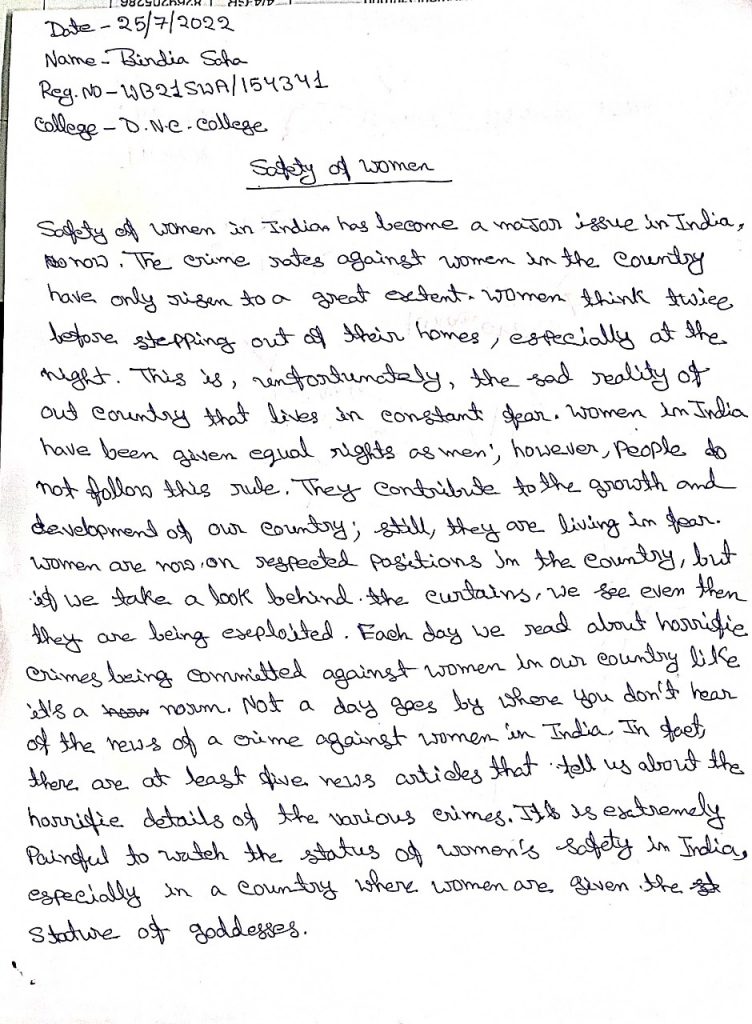 Date - 25/7/2022
Name - Bindia Saha
Reg. No - WB21SWA/154341
College - D.N.C. College
Safety of women
Safety of women in Indian has become a major issue in India,
now. The crime rates against women in the country
have only risen to a great extent. Women think twice
before stepping out of their homes, especially at the
night. This is, unfortunately, the sad reality of
out country that lives in constant fear. Women in India
have been given equal rights as men; however, People do
not follow this rule. They contribute to the growth and
development of our country; still, they are living in fear.
Women are now on respected positions in the country, but
if we take a look behind the curtains, we see even then
they are being exploited. Each day we read about horrific
crimes being committed against women in our country like
it's a norm. Not a day goes by where you don't hear
of the news of a crime against women in India. In fact,
there are at least five news articles that tell us about the
horrific details of the various crimes. It's is extremely
Painful to watch the status of women's safety in India,
especially in a country where women are given the
stature of goddesses.